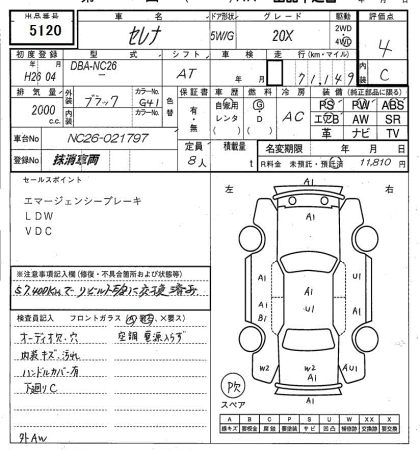 出品番号 車名 ドア形状 グレード 駆動 評価点
5120 セレナ 5W/G 20X 2WD 4WD 4
初度登録 型式 シフト 車検 走行(km・マイル) 内装
年 月 DBA-NC26 AT 年 月 71,149 C
H26 04
排気量 外装 ブラック カラーNo. G41 色替 保証書 車歴 燃料 冷房 装備(純正部品に限る)
2000 c.c. 内装 カラーNo. 有・無 自家用 レンタ G D AC PS PW ABS
エアB AW SR
革 ナビ TV
車台No NC26-021797 定員 積載量 名変期限 年 月
登録No 抹消車両 8人 t R料金 未預託・預託済 11,810 円
セールスポイント 左 右
エマージェンシーブレーキ
LDW
VDC
※注意事項記入欄(修復・不具合箇所および状態等)
検査員記入 フロントガラス
オーディオ欠.穴 空調
内装キズ.汚れ
ハンドルカバー有
下廻りC
外AW
A1
A1
A1
A1
A1
B1
U1
A1
W2
W2
AU1
A1
A1
スペア
A B C P S U W X XX